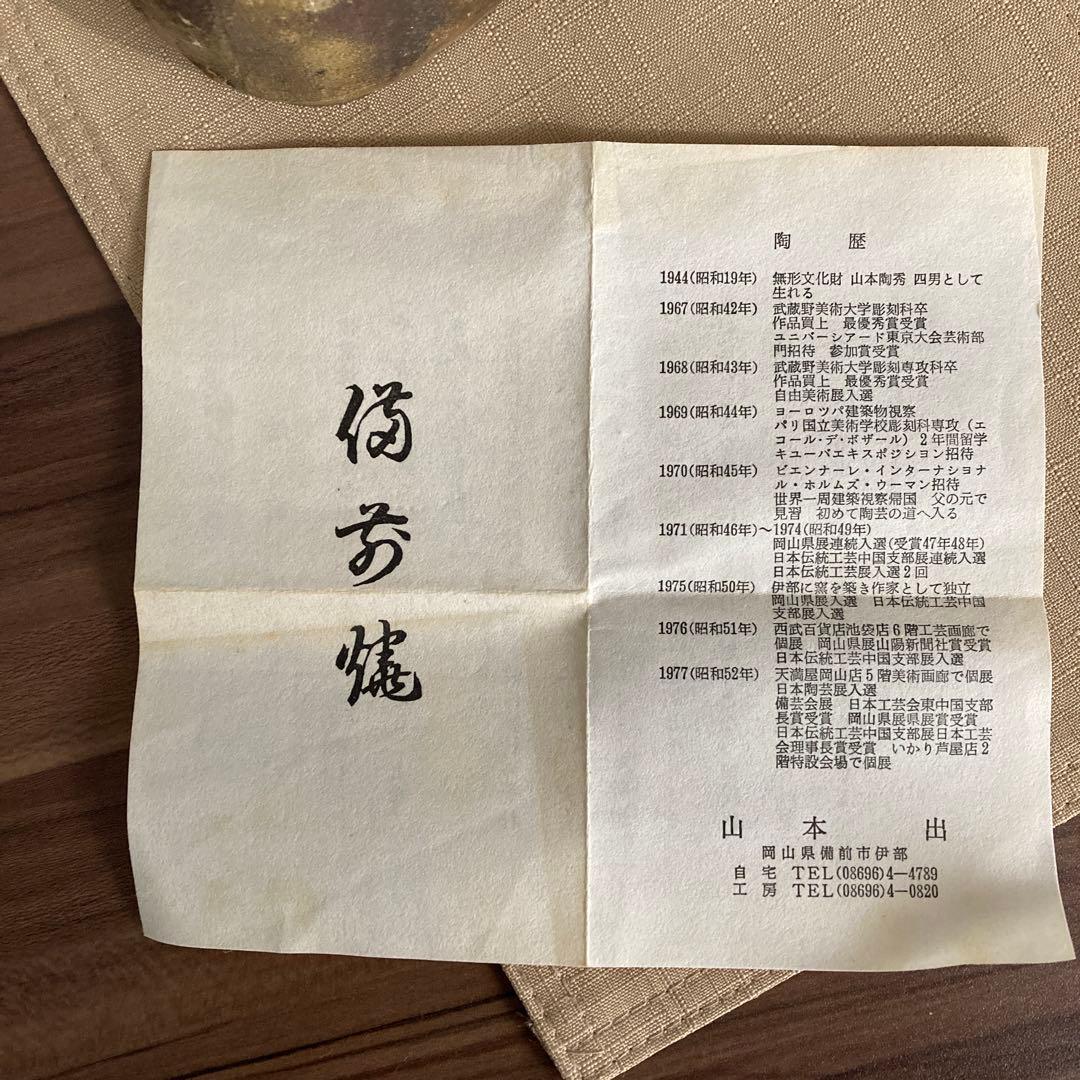 備前燒
陶歴
1944(昭和19年) 無形文化財 山本陶秀 四男として
生れる
1967(昭和42年) 武蔵野美術大学彫刻科卒
作品買上 最優秀賞受賞
ユニバーシアード東京大会芸術部
門招待 参加賞受賞
1968(昭和43年) 武蔵野美術大学彫刻専攻科卒
作品買上 最優秀賞受賞
自由美術展入選
1969(昭和44年) ヨーロツパ建築物視察
パリ国立美術学校彫刻科専攻(エ
コール・デ・ボザール) 2年間留学
キユーバエキスポジション招待
1970(昭和45年) ビエンナーレ・インターナショナ
ル・ホルムズ・ウーマン招待
世界一周建築視察帰国 父の元で
見習 初めて陶芸の道へ入る
1971(昭和46年)〜1974(昭和49年)
岡山県展連続入選(受賞47年48年)
日本伝統工芸中国支部展連続入選
日本伝統工芸展入選2回
1975(昭和50年) 伊部に窯を築き作家として独立
岡山県展入選 日本伝統工芸中国
支部展入選
1976(昭和51年) 西武百貨店池袋店6階工芸画廊で
個展 岡山県展山陽新聞社賞受賞
日本伝統工芸中国支部展入選
1977(昭和52年) 天満屋岡山店5階美術画廊で個展
日本陶芸展入選
備芸会展 日本工芸会東中国支部
長賞受賞 岡山県展県展賞受賞
日本伝統工芸中国支部展日本工芸
会理事長賞受賞 いかり芦屋店2
階特設会場で個展
山本 出
岡山県備前市伊部
自宅 TEL(08696)4―4789
工房 TEL(08696)4―0820